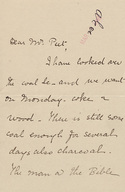 Dear Mr. Peet,
I have looked at
the coal &c. and we want
on Monday. coke &
wood. There is still some
coal enough for several
days also charcoal.
The man at the Bible